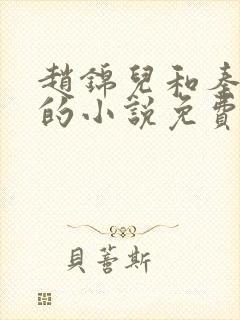 趙錦兒和秦
的小說免費
貝蒼斯